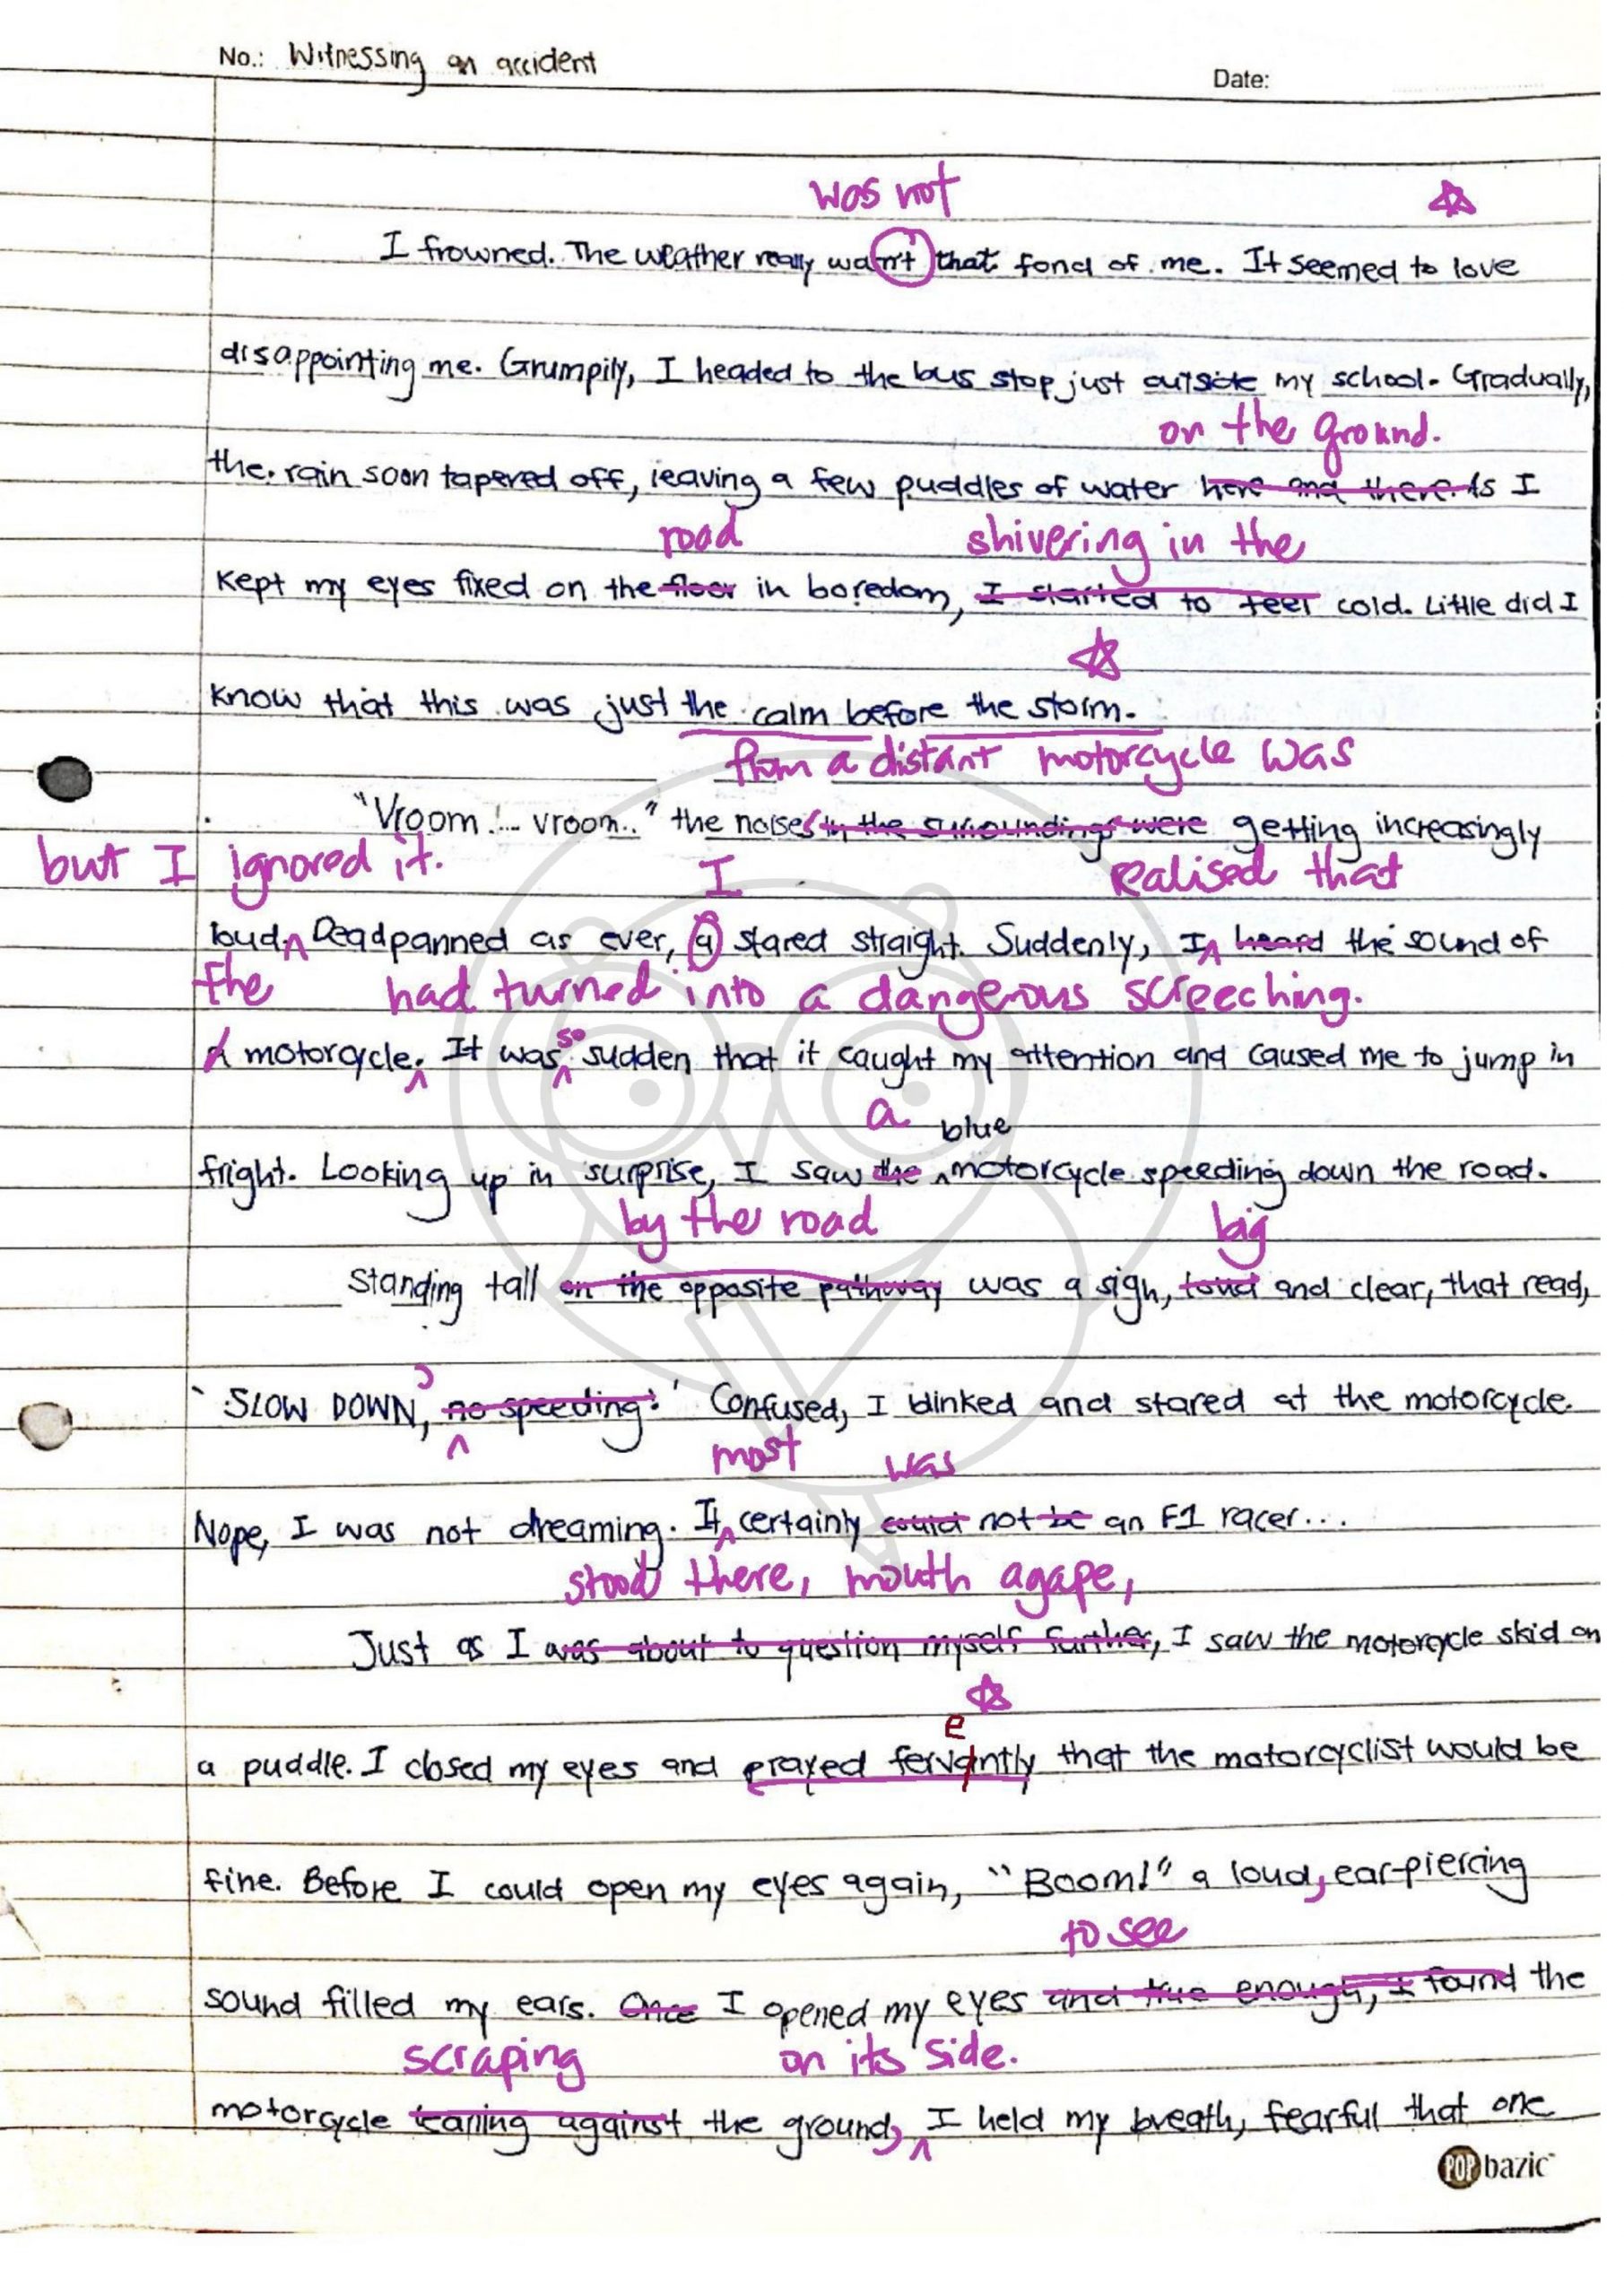 No.: Witnessing an accident
Date:
was not
I frowned. The weather really wasn't that fond of me. It seemed to love
disappointing me. Grumpily, I headed to the bus stop just outside my school. Gradually,
on the ground.
the rain soon tapered off, leaving a few puddles of water here and there. As I
road shivering in the
kept my eyes fixed on the floor in boredom, I started to feel cold. Little did I
know that this was just the calm before the storm.
from a distant motorcycle was
"Vroom... vroom.." the noises in the surroundings were getting increasingly
but I ignored it. I realised that
loud. Deadpanned as ever, a stared straight. Suddenly, I heard the sound of
the had turned into a dangerous screeching.
a motorcycle. It was so sudden that it caught my attention and caused me to jump in
a blue
fright. Looking up in surprise, I saw the motorcycle speeding down the road.
by the road big
Standing tall on the opposite pathway was a sign, loud and clear, that read,
'SLOW DOWN, no speeding.' Confused, I blinked and stared at the motorcycle.
most was
Nope, I was not dreaming. It certainly could not be an F1 racer...
stood there, mouth agape,
Just as I was about to question myself further, I saw the motorcycle skid on
e
a puddle. I closed my eyes and prayed fervantly that the motorcyclist would be
fine. Before I could open my eyes again, "Boom!" a loud, ear-piercing
to see
sound filled my ears. Once I opened my eyes and true enough, I found the
scraping on its side.
motorcycle tearing against the ground, I held my breath, fearful that one
POP bazic